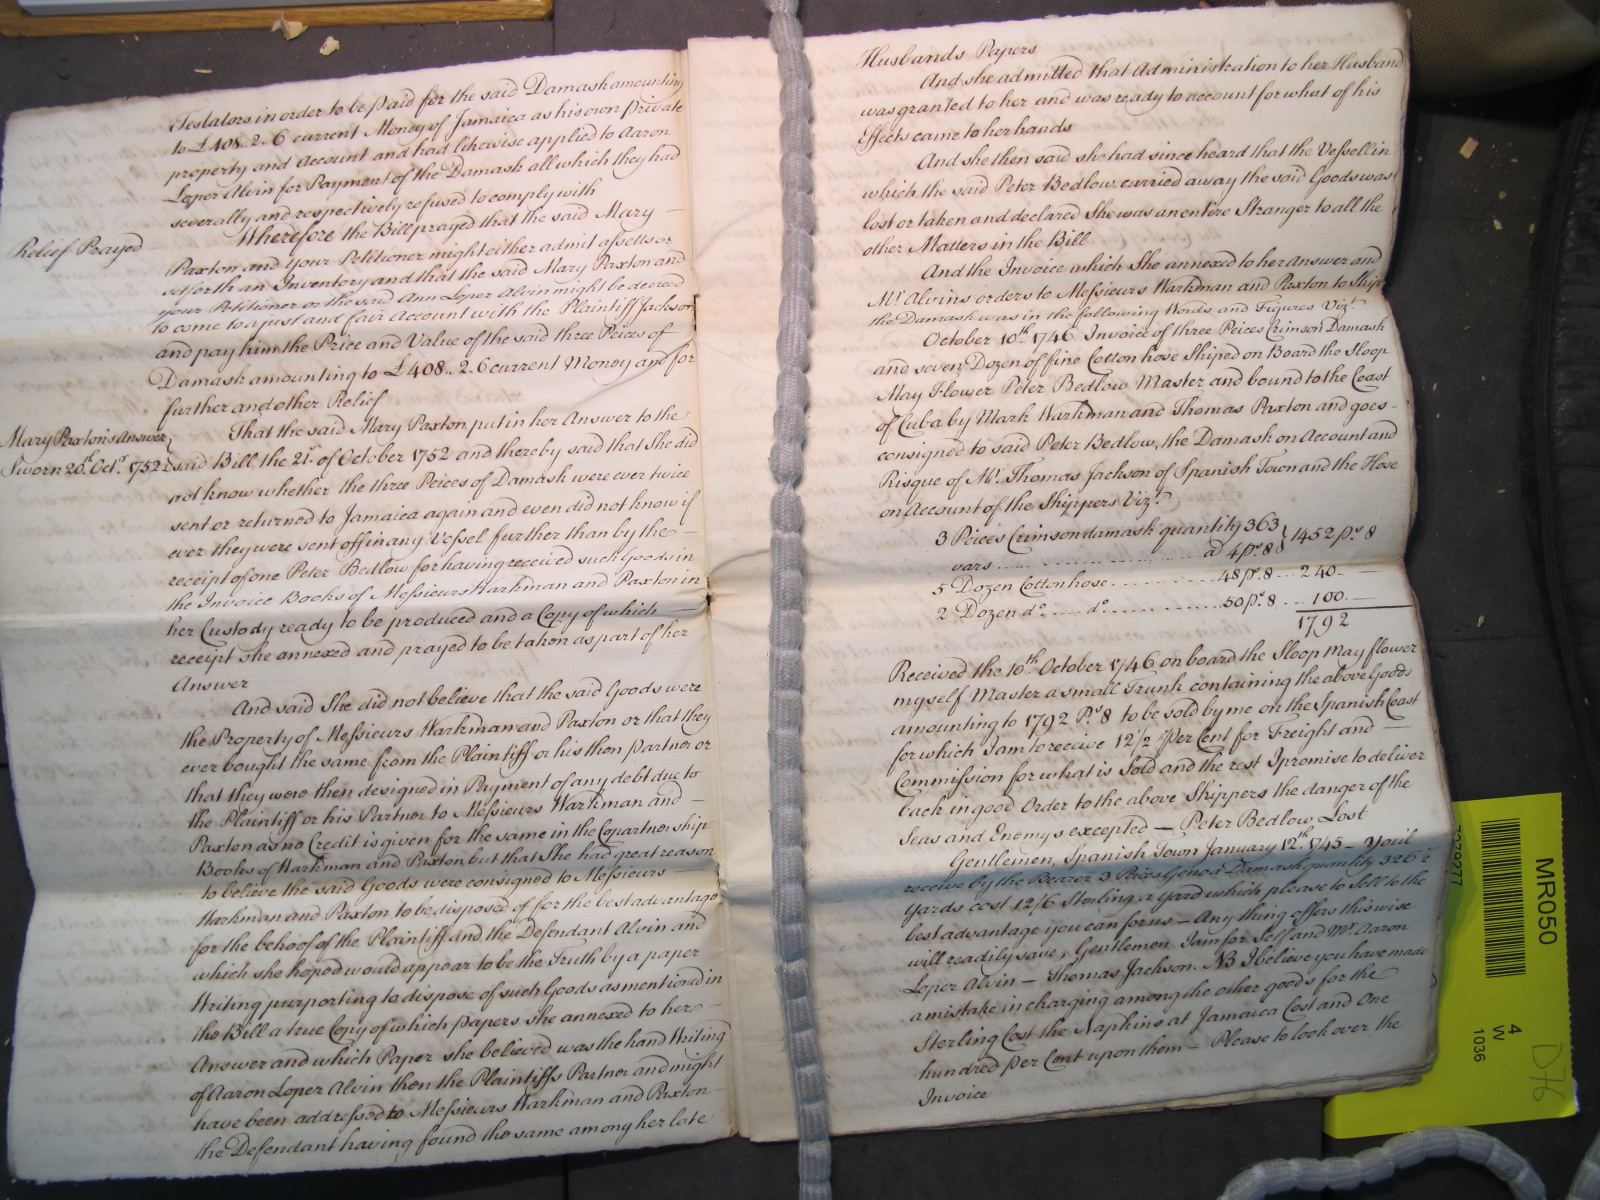 Testators in order to be paid for the said Damask amounting
to £408..2..6 current Money of Jamaica as his own private
property and Account and had likewise applied to Aaron
Loper Alvin for Payment of the Damask all which they had
severally and respectively refused to comply with
Relief Prayed
Wherefore the Bill prayed that the said Mary
Paxton and your Petitioner might either admit assetts or
setforth an Inventory and that the said Mary Paxton and
your Petitioner or the said Ann Loper Alvin might be decreed
to come to a just and fair Account with the Plaintiff Jackson
and pay him the Price and Value of the said three Peices of
Damask amounting to £408..2.6 current Money and for
further and other Relief
Mary Paxton's Answer
Sworn 20th. Octr. 1752
That the said Mary Paxton put in her Answer to the
said Bill the 21st. of October 1752 and thereby said that She did
not know whether the three Peices of Damask were ever twice
sent or returned to Jamaica again and even did not know if
ever they were sent off in any Vessel further than by the
receipt of one Peter Bedlow for having received such Goods in
the Invoice Books of Messieurs Harkman and Paxton in
her Custody ready to be produced and a Copy of which
receipt she annexed and prayed to be taken as part of her
Answer
And said She did not believe that the said Goods were
the Property of Messieurs Harkman and Paxton or that they
ever bought the same from the Plaintiff or his then partner or
that they were then designed in Payment of any debt due to
the Plaintiff or his Partner to Messieurs Harkman and
Paxton as no Credit is given for the same in the Copartnership
Books of Harkman and Paxton but that She had great reason
to believe the said Goods were consigned to Messieurs
Harkman and Paxton to be disposed of for the best advantage
for the behoof of the Plaintiff and the Defendant Alvin and
which she hoped would appear to be the Truth by a paper
Writing purporting to dispose of such Goods as mentioned in
the Bill a true Copy of which papers she annexed to her
Answer and which Paper she believed was the hand Writing
of Aaron Loper Alvin then the Plaintiffs Partner and might
have been addressed to Messieurs Harkman and Paxton
the Defendant having found the same among her late
Husbands Papers
And she admitted that Administration to her Husband
was granted to her and was ready to account for what of his
Effects came to her hands
And she then said she had since heard that the Vessell in
which the said Peter Bedlow carried away the said Goods was
lost or taken and declared She was an entire Stranger to all the
other Matters in the Bill
And the Invoice which She annexed to her Answer and
Mr. Alvins orders to Messieurs Harkman and Paxton to Ship
the Damask was in the following Words and Figures Vizt.
October 10th. 1746 Invoice of three Peices Crimson Damask
and seven Dozen of fine Cotton hose Shiped on Board the Sloop
May Flower Peter Bedlow Master and bound to the Coast
of Cuba by Mark Harkman and Thomas Paxton and goes
consigned to said Peter Bedlow, the Damask on Account and
Risque of Mr. Thomas Jackson of Spanish Town and the Hose
on Account of the Shippers Vizt.
3 Peices Crimson damask quantity 363
vars .... a 4 ps. 8 } 1452 ps. 8
5 Dozen Cotton hose .... 48 ps. 8 ... 240.
2 Dozen do. .... do. .... 50 ps. 8 ... 100.
1792
Received the 10th. October 1746 on board the Sloop May flower
myself Master a small Trunk containing the above Goods
amounting to 1792 Ps. 8 to be sold by me on the Spanish Coast
for which I am to receive 12 1/2 Per Cent for Freight and
Commission for what is Sold and the rest I promise to deliver
back in good Order to the above Shippers the danger of the
Seas and Enemys excepted — Peter Bedlow Lost
Gentlemen, Spanish Town January 12th. 1745 — Youil
receive by the Bearer 3 Peices Genoa Damask quantity 326 1/2
Yards cost 12/6 Sterling a Yard which please to Sell to the
best advantage you can for us — Any thing offers this wise
will readily save, Gentlemen I am for Self and Mr. Aaron
Loper Alvin — Thomas Jackson. NB I believe you have made
a mistake in charging among the other goods for the
Sterling Cost the Napkins at Jamaica Cost and One
hundred per Cent upon them — Please to look over the
Invoice
MR050
4
W
1036
D76